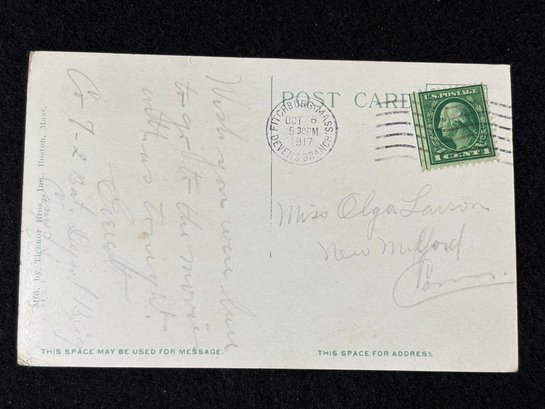 POST CARD
FITCHBURG-MASS.
OCT 6
5 30PM
1917
DEVENS BRANCH
U.S. POSTAGE
1 CENT 1
Wish you were here
to go to the movies
with us tonight.
Co 7-2 Bat. Depot Brig
Miss Olga Larson
New Milford
Conn.
Mfd. by Tichnor Bros. Inc., Boston, Mass.
THIS SPACE MAY BE USED FOR MESSAGE.
THIS SPACE FOR ADDRESS